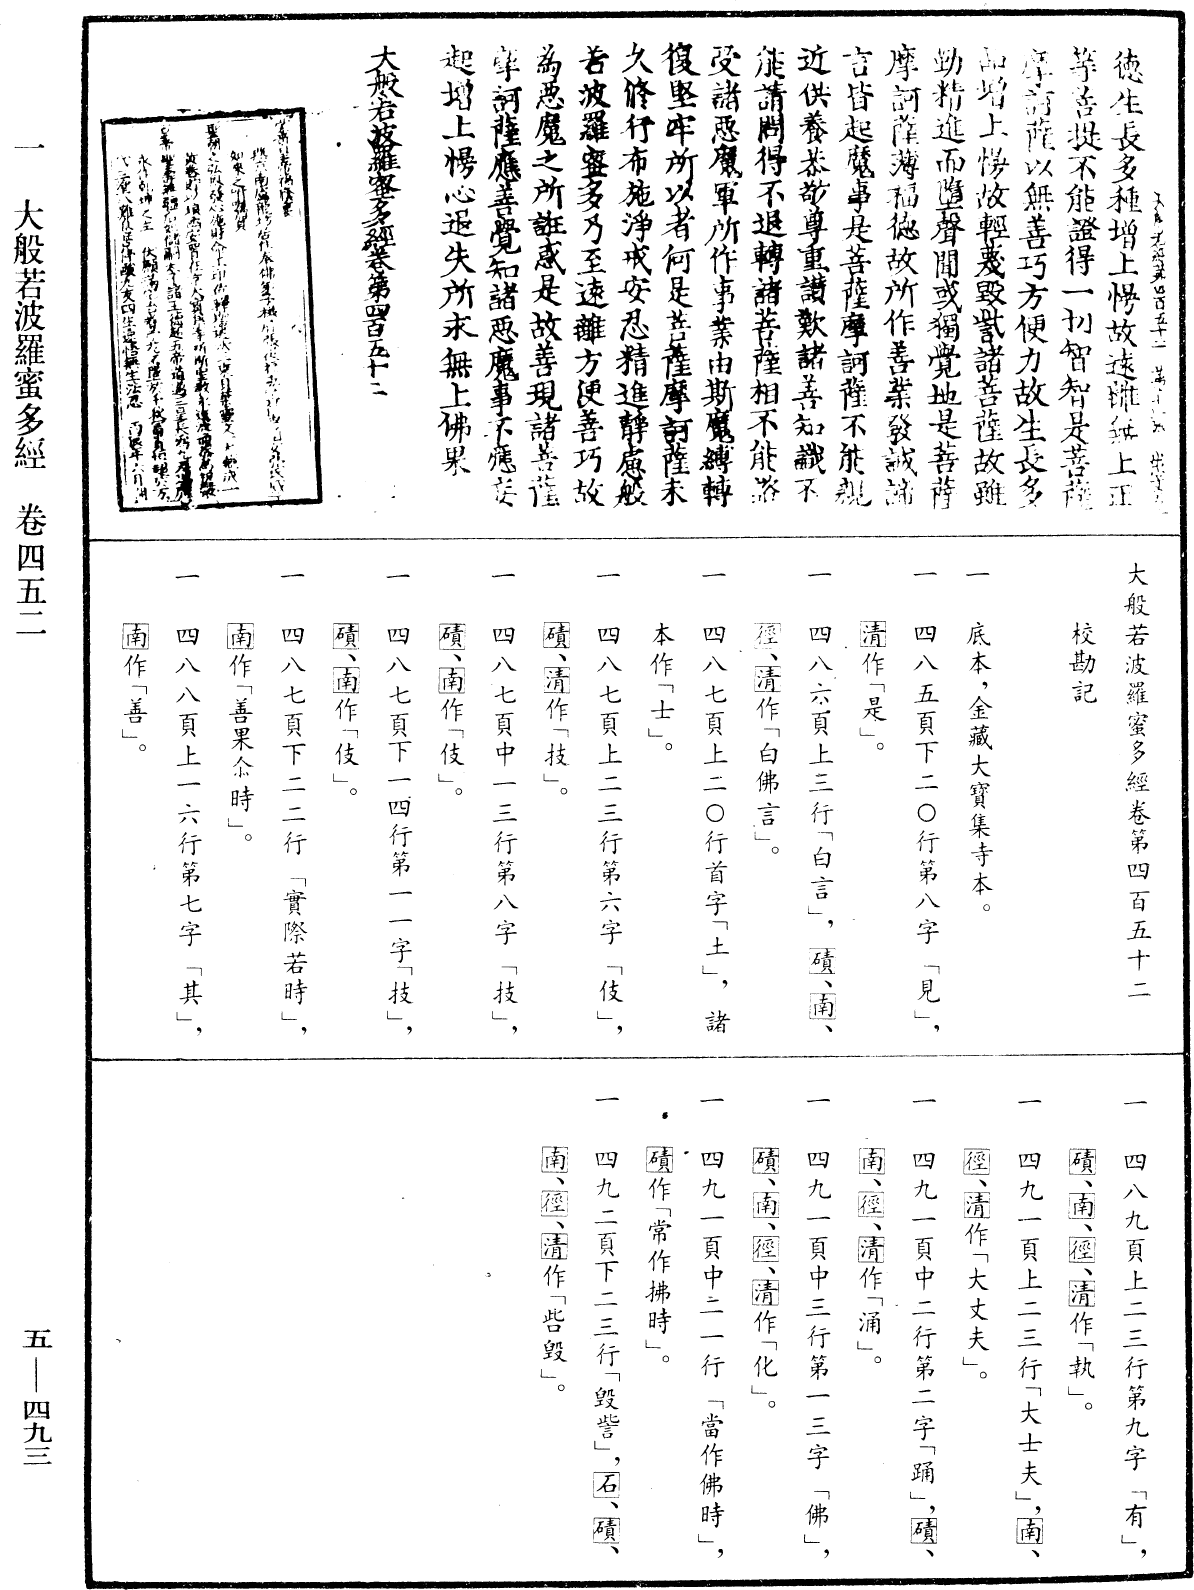 德生長多種增上慢故遠離無上正
等菩提不能證得一切智智是菩薩
摩訶薩以無善巧方便力故生長多
品增上慢故輕蔑毀訾諸菩薩故雖
勤精進而墮聲聞或獨覺地是菩薩
摩訶薩薄福德故所作善業發誠諦
言皆起魔事是菩薩摩訶薩不能親
近供養恭敬尊重讚歎諸善知識不
能請問得不退轉諸菩薩相不能諮
受諸惡魔軍所作事業由斯魔縛轉
復堅牢所以者何是菩薩摩訶薩未
久修行布施淨戒安忍精進靜慮般
若波羅蜜多乃至遠離方便善巧故
為惡魔之所誑惑是故善現諸菩薩
摩訶薩應善覺知諸惡魔事不應妄
起增上慢心退失所求無上佛果
大般若波羅蜜多經卷第四百五十二
大般若波羅蜜多經卷第四百五十二
校勘記
一 底本，金藏大寶集寺本。
一 四八五頁下二〇行第八字「見」，
清作「是」。
一 四八六頁上三行「白言」，磧、南、
徑、清作「白佛言」。
一 四八七頁上二〇行首字「土」，諸
本作「士」。
一 四八七頁上二三行第六字「伎」，
磧、清作「技」。
一 四八七頁中一三行第八字「技」，
磧、南作「伎」。
一 四八七頁下一四行第一一字「技」，
磧、南作「伎」。
一 四八七頁下二二行「實際若時」，
南作「善果尒時」。
一 四八八頁上一六行第七字「其」，
南作「善」。
一 四八九頁上二三行第九字「有」，
磧、南、徑、清作「執」。
一 四九一頁上二三行「大士夫」，南、
徑、清作「大丈夫」。
一 四九一頁中二行第二字「踊」，磧、
南、徑、清作「涌」。
一 四九一頁中三行第一三字「佛」，
磧、南、徑、清作「化」。
一 四九一頁中二一行「當作佛時」，
磧作「常作拂時」。
一 四九二頁下二三行「毀訾」，石、磧、
南、徑、清作「呰毀」。
一 大般若波羅蜜多經 卷四五二
五—四九三